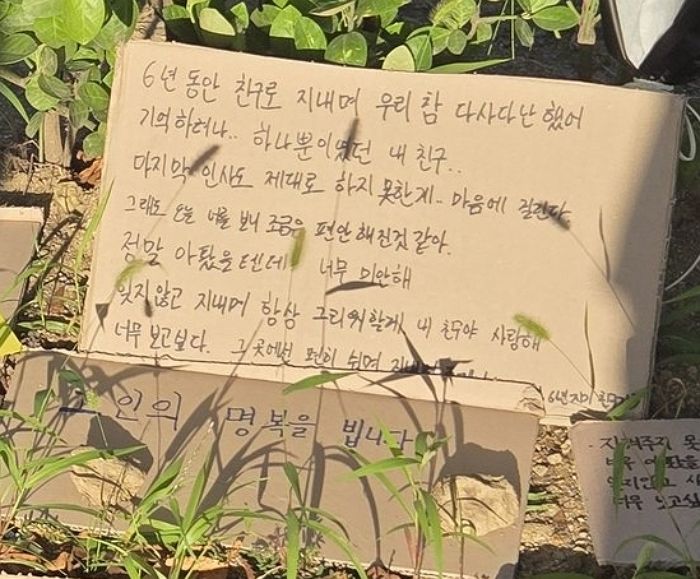 6년 동안 친구로 지내며 우리 참 다사다난했어
기억하려나.. 하나뿐이었던 내 친구..
마지막 인사도 제대로 하지 못한게.. 마음에 걸린다
그래도 오늘 너를 보니 조금은 편안해진것 같아.
정말 아팠을텐데 너무 미안해
잊지않고 지내며 항상 그리워할게 내 친구야 사랑해
너무 보고싶다. 그곳에선 편히 쉬며
6년지기 친구가
고인의 명복을 빕니다
- 지켜주지 못
너무 아팠을
잊지않고 사
너무 보고싶